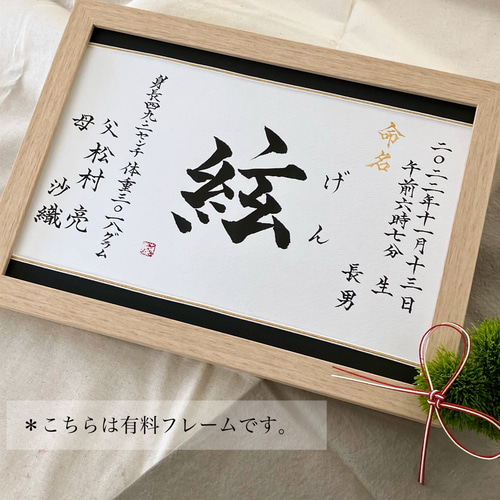 命名
二〇二二年十一月十三日
午前六時七分 生
長男
げん
絃
身長四九.二センチ 体重三〇一八グラム
父 松村 亮
母 沙織
＊こちらは有料フレームです。